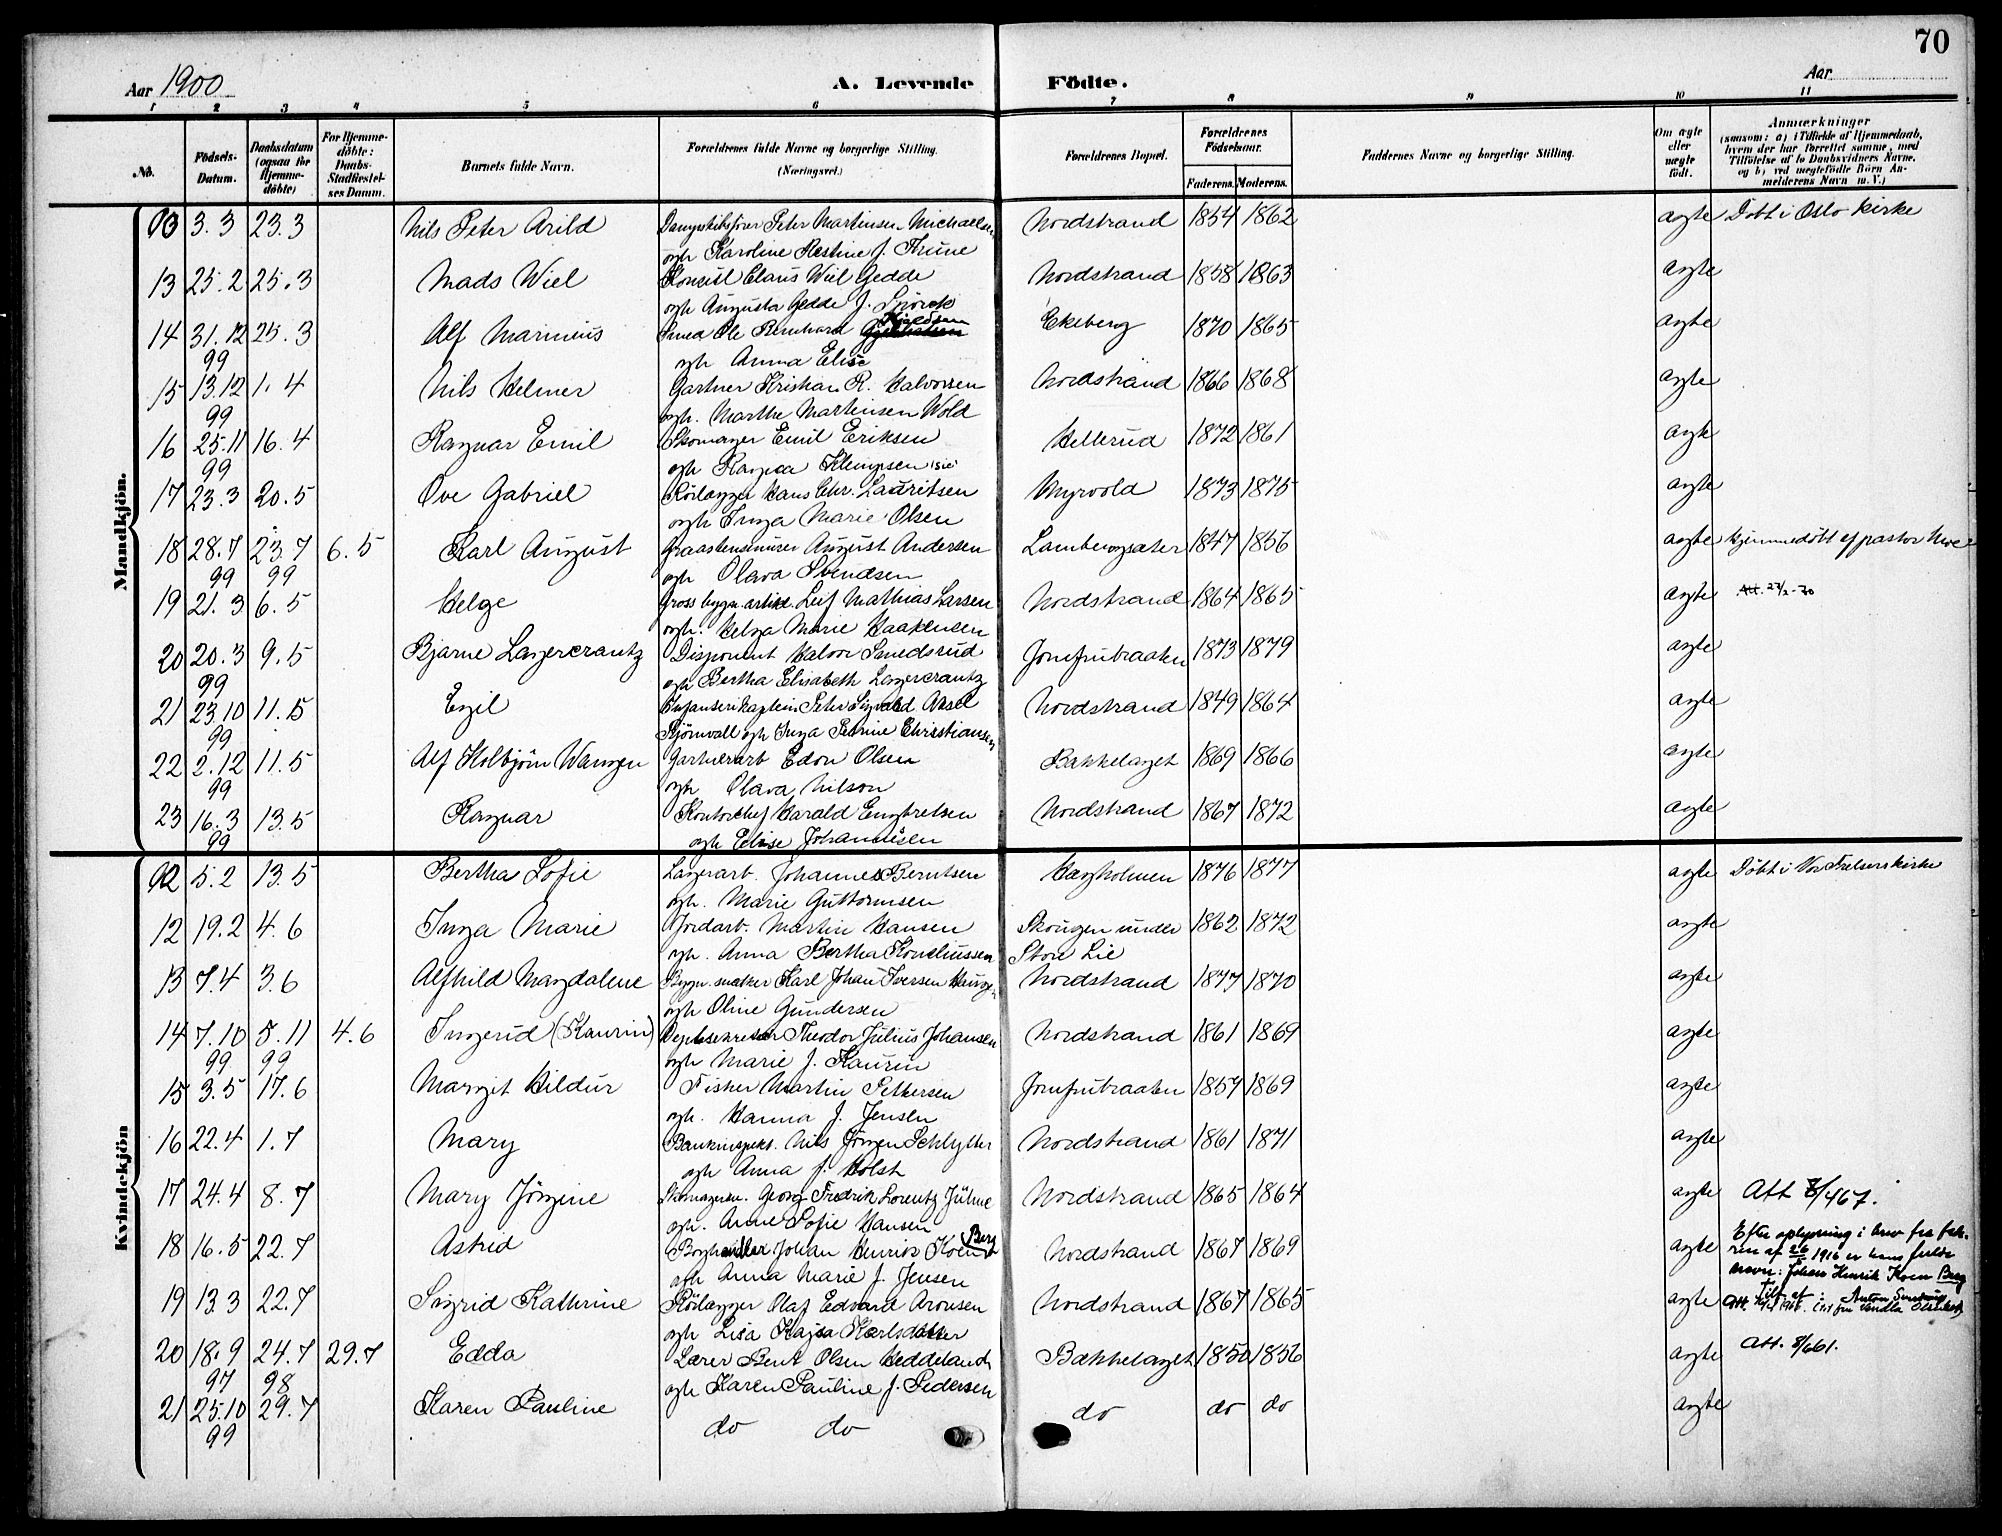 70
Aar 1900
A. Levende Födte.
Aar
1 2 3 4 5 6 7 8 9 10 11
No. Födsels-Datum. Daabsdatum (ogsaa for Hjemmedöbte) For Hjemmedöbte: Daabs-Stadfæstelses Datum. Barnets fulde Navn. Forældrenes fulde Navne og borgerlige Stilling. (Næringsvei.) Forældrenes Bopæl. Forældrenes Födselsaar. Faderens. Moderens. Faddernes Navne og borgerlige Stilling. Om ægte eller uægte födt. Anmærkninger (saasom: a) i Tilfælde af Hjemmedaab, hvem der har forrettet samme, med Tilföielse af to Daabsvidners Navne, og b) ved uægtefödte Börn Anmelderens Navn m. V.)
Mandkjön.
3.3 23.3 Nils Peter Arild Dampskibsförer Peter Martinsen Michaelsen Nordstrand 1854 1862 ægte Döbt i Oslo kirke
ogh Karoline Restine f. Thune
13 25.2 25.3 Mads Wiel Konsul Claus Wiel Gedde Nordstrand 1858 1863 ægte
ogh Augusta Gedde f. Snörck
14 31.12 25.3 Alf Marinius Smed Ole Bernhard Kjeldsen Ekeberg 1870 1865 ægte
99 ogh Anna Elise
15 13.12 1.4 Nils Helmer Gartner Kristian R. Halvorsen Nordstrand 1866 1868 ægte
99 ogh. Marthe Martinsen Wold
16 25.11 16.4 Ragnar Emil Skomager Emil Eriksen Hellerud 1872 1861 ægte
99 ogh Ragna Klempsen (sic)
17 23.3 20.5 Ove Gabriel Rörlægger Hans Chr. Lauritsen Myrvold 1873 1875 ægte
ogh Inga Marie Olsen
18 28.7 23.7 6.5 Karl August Graastensmurer August Andersen Lambergsæter 1847 1856 ægte Hjemmedöbt af pastor
99 99 ogh Olava Svendsen
19 21.3 6.5 Helge Leif Mathias Larsen Nordstrand 1864 1865 ægte Att. 27/2-70
ogh. Helga Marie Haakensen
20 20.3 9.5 Bjarne Lagercrantz Disponent Halvor Smedsrud Jomfrubraaten 1873 1879 ægte
99 ogh Bertha Elisabeth Lagercrantz
21 23.10 11.5 Egil Infanterikaptein Peter Sigvald Aksel Nordstrand 1849 1864 ægte
99 Björnvall ogh Inga Petrine Christiansen
22 2.12 11.5 Alf Kolbjörn Wangen Gartnerarb Edon Olsen Bækkelaget 1869 1866 ægte
99 ogh Olava Nilson
23 16.3 13.5 Ragnar Kontorchef Harald Engbretsen Nordstrand 1867 1872 ægte
99 ogh Elise Johannesen
Kvindekjön
5.2 13.5 Bertha Sofie Lagerarb. Johannes Berntsen Hægholmen 1876 1877 ægte Döbt i Vor Frelsers kirke
ogh. Marie Guttormsen
12 19.2 4.6 Inga Marie Jordarb. Martin Hansen Skougen under 1862 1872 ægte
ogh. Anna Bertha Korneliussen Store Lie
13 7.4 3.6 Alfhild Magdalene Bygn. snekker Karl Johan Iversen Nordstrand 1877 1870 ægte
ogh Oline Gundersen
14 7.10 5.11 4.6 Ingerid (Kaurin) Theodor Julius Johansen Nordstrand 1861 1869 ægte
99 99 ogh Marie f. Kaurin
15 3.5 17.6 Margit Hildur Fisker Martin Pettersen Jomfrubraaten 1857 1869 ægte
ogh. Hanna f. Jensen
16 22.4 1.7 Mary Bankinspekt. Nils Jörgen Schlytter Nordstrand 1861 1871 ægte
ogh Anna f. Holst
17 24.4 8.7 Mary Jörgine Skomagersv. Georg Fredrik Lorentz Jühne Nordstrand 1865 1864 ægte Att 8/467.
ogh. Anne Sofie Hansen
18 16.5 22.7 Astrid Boghandler Johan Henrik Koen Berg Nordstrand 1867 1869 ægte Efter oplysning i brev fra faderen af 26/5 1916 er hans fulde navn: Johan Henrik Koen Berg
ogh Anna Marie f. Jensen
19 13.3 22.7 Sigrid Kathrine Rörlægger Olaf Edvard Aronsen Nordstrand 1867 1865 ægte
ogh Lisa Kajsa Karlsdatter
20 18.9 24.7 29.7 Edda Lærer Bent Olsen Heddeland Bækkelaget 1850 1856 ægte Att. 8/661.
97 98 ogh Karen Pauline f. Pedersen
21 25.10 29.7 Karen Pauline do do do do do ægte
99